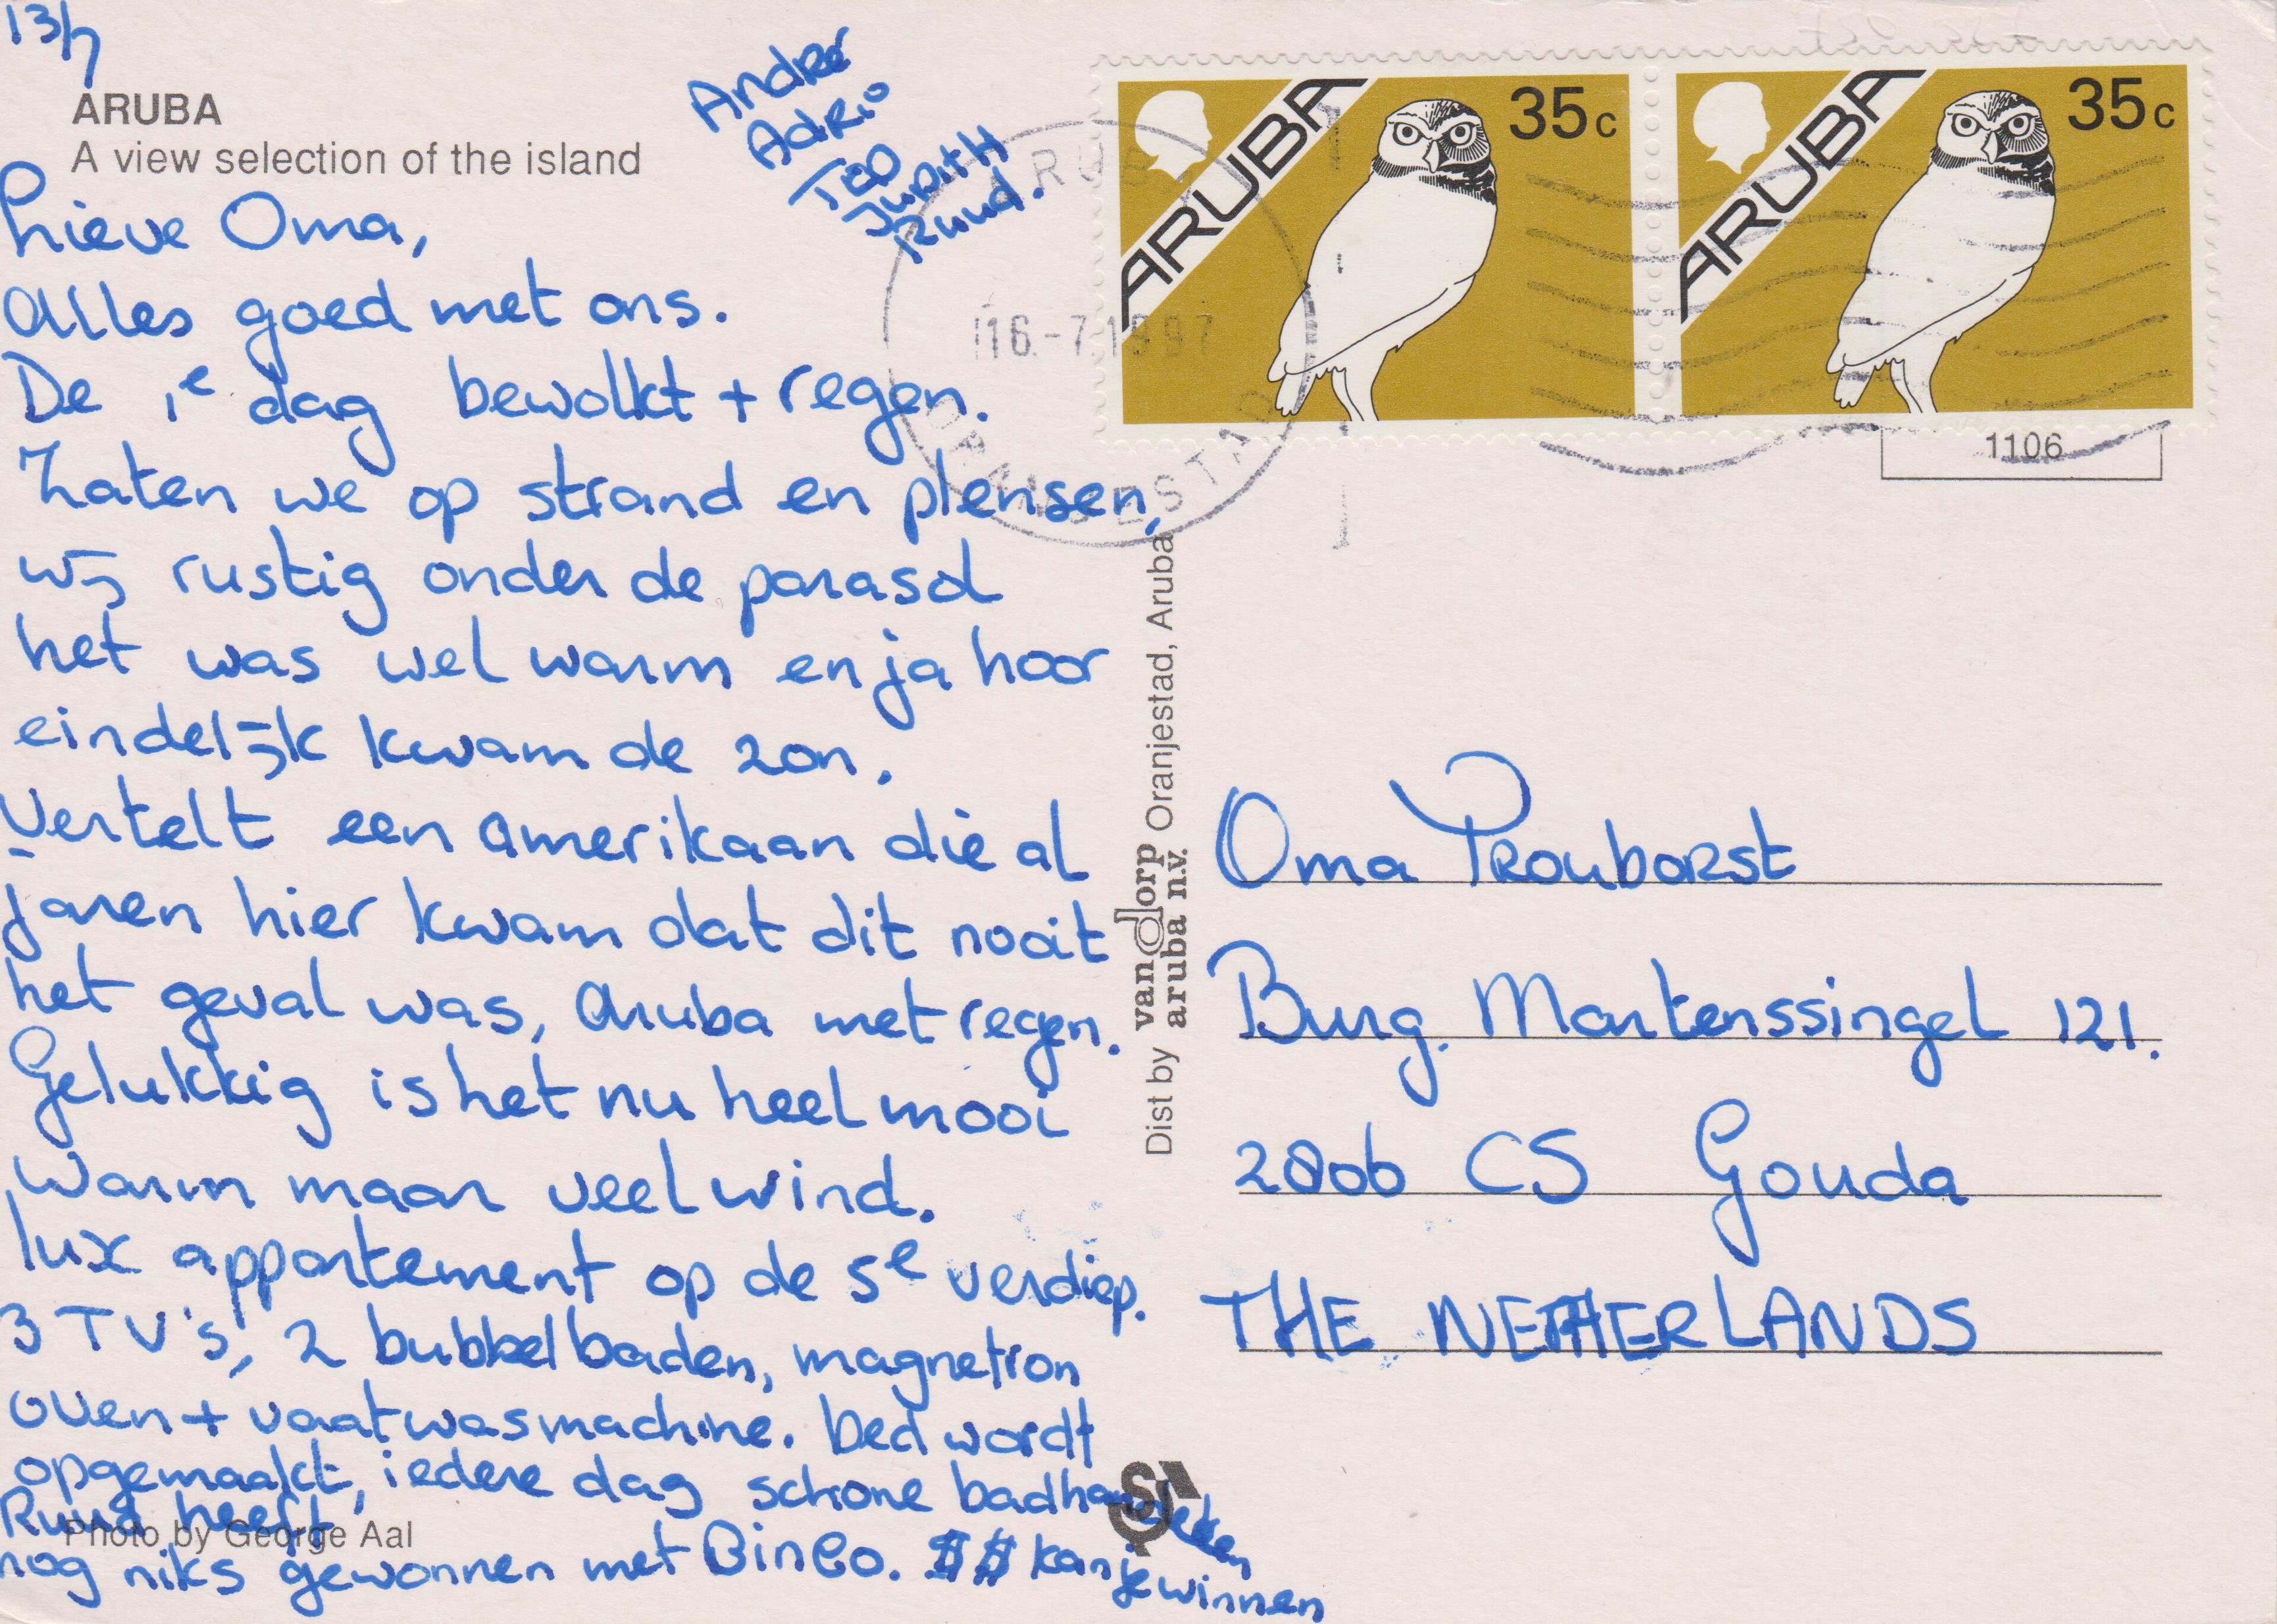 13/7
ARUBA
A view selection of the island
Lieve Oma,
Alles goed met ons.
De 1e dag bewolkt + regen.
Zaten we op strand en plensen,
wij rustig onder de parasol
het was wel warm en ja hoor
eindelijk kwam de zon.
Vertelt een Amerikaan die al
jaren hier kwam dat dit nooit
het geval was, Aruba met regen.
Gelukkig is het nu heel mooi
warm maar veel wind.
lux appartement op de 5e verdiep.
3 TV's, 2 bubbelbaden, magnetron
oven + vaatwasmachine. Bed wordt
opgemaakt, iedere dag schone badhanddoeken
Ruud heeft
nog niks gewonnen met Bingo. $$ kan je winnen
Photo by George Aal
André
Adri
TED
JUDITH
Ruud.
ARUBA 35c
ARUBA 35c
ARUBA
16.-7.1997
ORANJESTAD
1106
Dist by vandorp aruba n.v. Oranjestad, Aruba
Oma Prouborst
Burg. Martenssingel 121.
2806 CS Gouda
THE NETHERLANDS